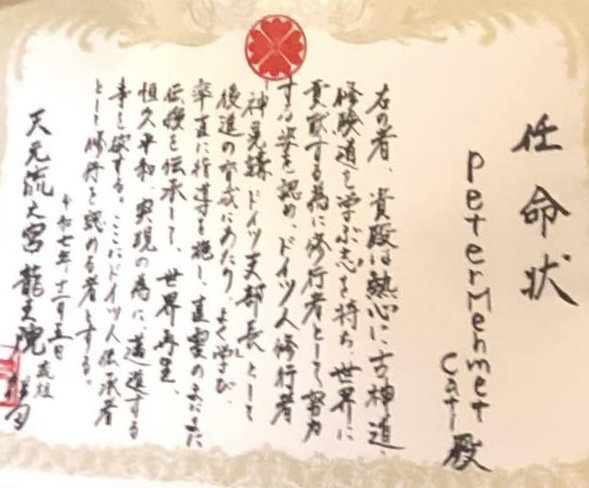 任命状
peterMehmet
Cati殿
右の者、貴殿は熱心に古神道、
修験道を学ぶ志を持ち、世界に
貢献する為に修行者として努力
する姿を認め、ドイツ人修行者
神見講ドイツ支部長として
後進の育成にあたり、よく学び、
率直に行導を施し、直霊のまにまに
伝授を伝承して、世界再生、
恒久平和、実現の為に、邁進する
事を欲する。ここにドイツ人伝承者
として修行を認める者とする。
令和七年十一月五日
天元流之宮龍王院